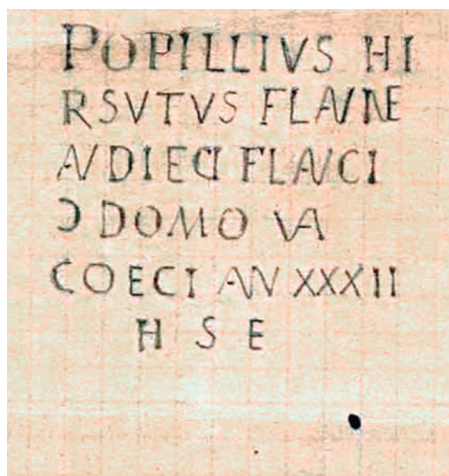 POPILLIVS HI
RSVTVS FLAVINE
AVDIECI FLAVCI
Ɔ DOMO VA
COECI AN XXXII
H S E